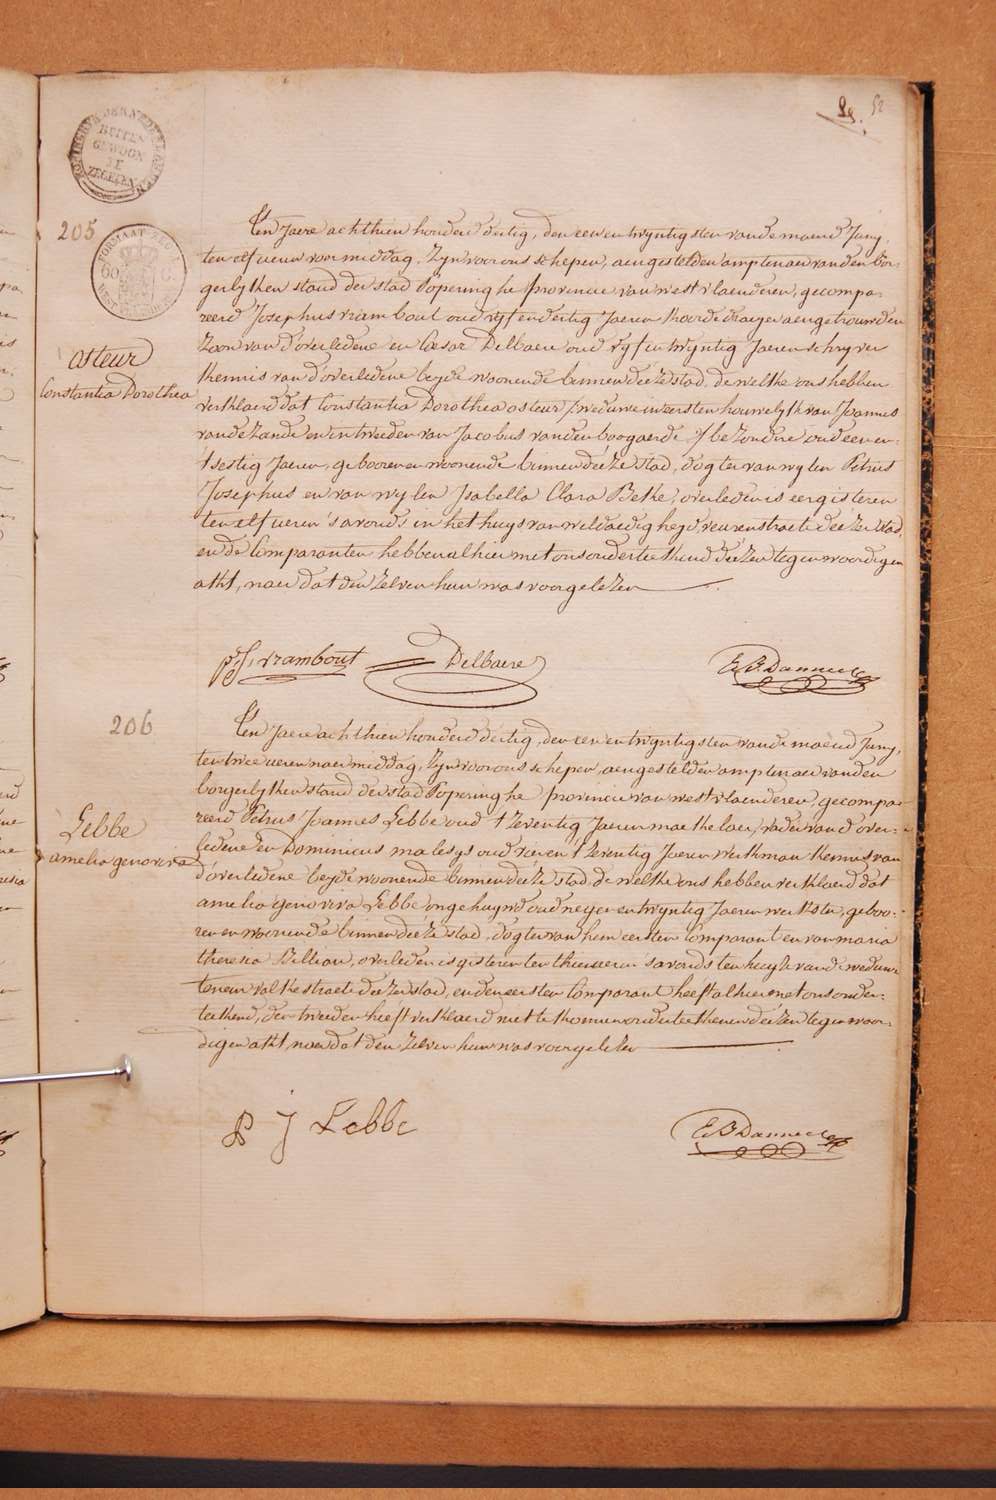 52
KONINGRYK DER NEDERLANDEN
BUITEN
GEWOON
ZEGELEN
205
FORMAAT ZEGEL
60
WEST
osteur
Constantia Dorothea
Ten Jaere achthien honderd dertig, den een en twyntigsten van de maend Juny,
ten elf ueren voormiddag, Zyn voor ons schepen, aengestelden amptenaer van den bor-
gerlyken stand der stad Poperinghe provincie van westvlaenderen, gecompa-
reerd Josephus vrambout oud vyf en dertig Jaeren koordedraeger aengetrouwden
zoon van d'overledene en Cæsar Delbaere oud vyf en twyntig Jaeren schryver
kennis van d'overledene beyde woonende binnen deeze stad, de welke ons hebben
verklaerd dat Constantia Dorothea osteur, weduwe in eersten houwelyk van Joannes
vande Zande en in tweeden van Jacobus vanden boogaerde bezondere oud een en
tsestig Jaeren, gebooren en woonende binnen deeze stad, dogter van wylen Petrus
Josephus en van wylen Isabella Clara Beke, overleden is eergisteren
ten elf ueren 's avonds in het huys van weldaedigheyd, deezer stad,
en de Comparanten hebben alhier met ons onderteekend deezen tegenwoordigen
akt, naer dat den zelven hun was voorgelezen
p. J. vrambout Delbaere
206
Lebbe
amelia genoviva
Ten Jaere achthien honderd dertig, den een en twyntigsten van de maend Juny,
ten twee ueren naermiddag, Zyn voor ons schepen, aengestelden amptenaer van den
borgerlyken stand der stad Poperinghe provincie van westvlaenderen, gecompa-
reerd Petrus Joannes Lebbe oud tzeventig Jaeren maekelaer, vader van d'over-
ledene en Dominicus malesys oud tzeventig Jaeren werkman kennis van
d'overledene beyde woonende binnen deeze stad, de welke ons hebben verklaerd dat
amelia genoviva Lebbe ongehuywd oud negen en twyntig Jaeren werkster, geboo-
ren en woonende binnen deeze stad, dogter van hem eersten Comparant en van maria
theresia Billiau, overleden is gisteren ten thien ueren 's avonds ten huyse van de weduwe
in valkestraete deezer stad, en den eersten Comparant heeft alhier met ons onder-
teekend, den tweeden heeft verklaerd niet te konnen onderteekenen deezen tegenwoor-
digen akt, naer dat den zelven hun was voorgelezen
P J Lebbe